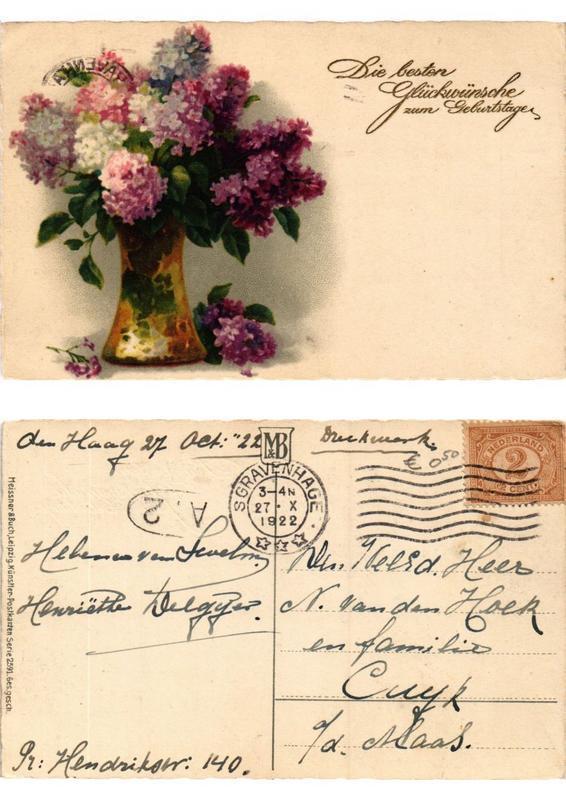 Die besten
Glückwünsche
zum Geburtstage
den Haag 27 Oct: "22
M&B
Drukwerk.
€ 0.50
NEDERLAND
2
CENT
'S GRAVENHAGE
3-4N
27 · X
1922
A. 2
Meissner & Buch, Leipzig. Künstler-Postkarten Serie 2591. Ges. gesch.
Helena van
Henriëtte
Den WelEd. Heer
N. van den Hoek
en familie
Cuyk
a/d. Maas.
Pr: Hendrikstr: 140.